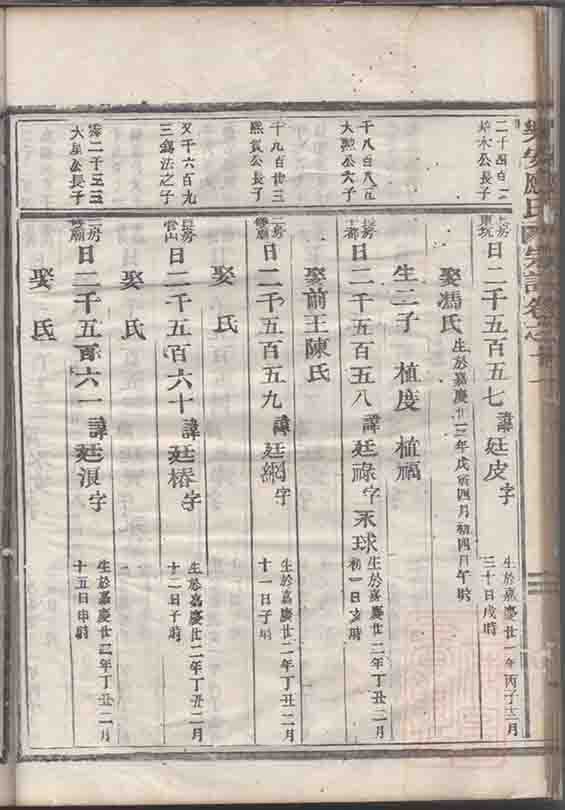 應氏宗譜卷之十一
二千四百
木公長子
長房
東坑
日二千五百五七諱廷皮字
生於嘉慶廿一年丙子三月
三十日戌時
娶馮氏
生於嘉慶廿三年戊寅四月初四日午時
生二子 植度 植福
千八百八五
大熬公次子
長房
日二千五百五八諱廷祿字永球
生於嘉慶廿二年丁丑二月
初一日
時
娶前王陳氏
千九百廿三
熙賀公長子
二房
日二千五百五九諱廷綱字
生於嘉慶廿二年丁丑二月
十一日子時
娶 氏
又千六百九
三錫法之子
長房
日二千五百六十諱廷椿字
生於嘉慶廿二年丁丑二月
十二日子時
娶 氏
二千三三
大星公長子
二房
日二千五百六一諱廷浪字
生於嘉慶廿二年丁丑二月
十五日申時
娶 氏